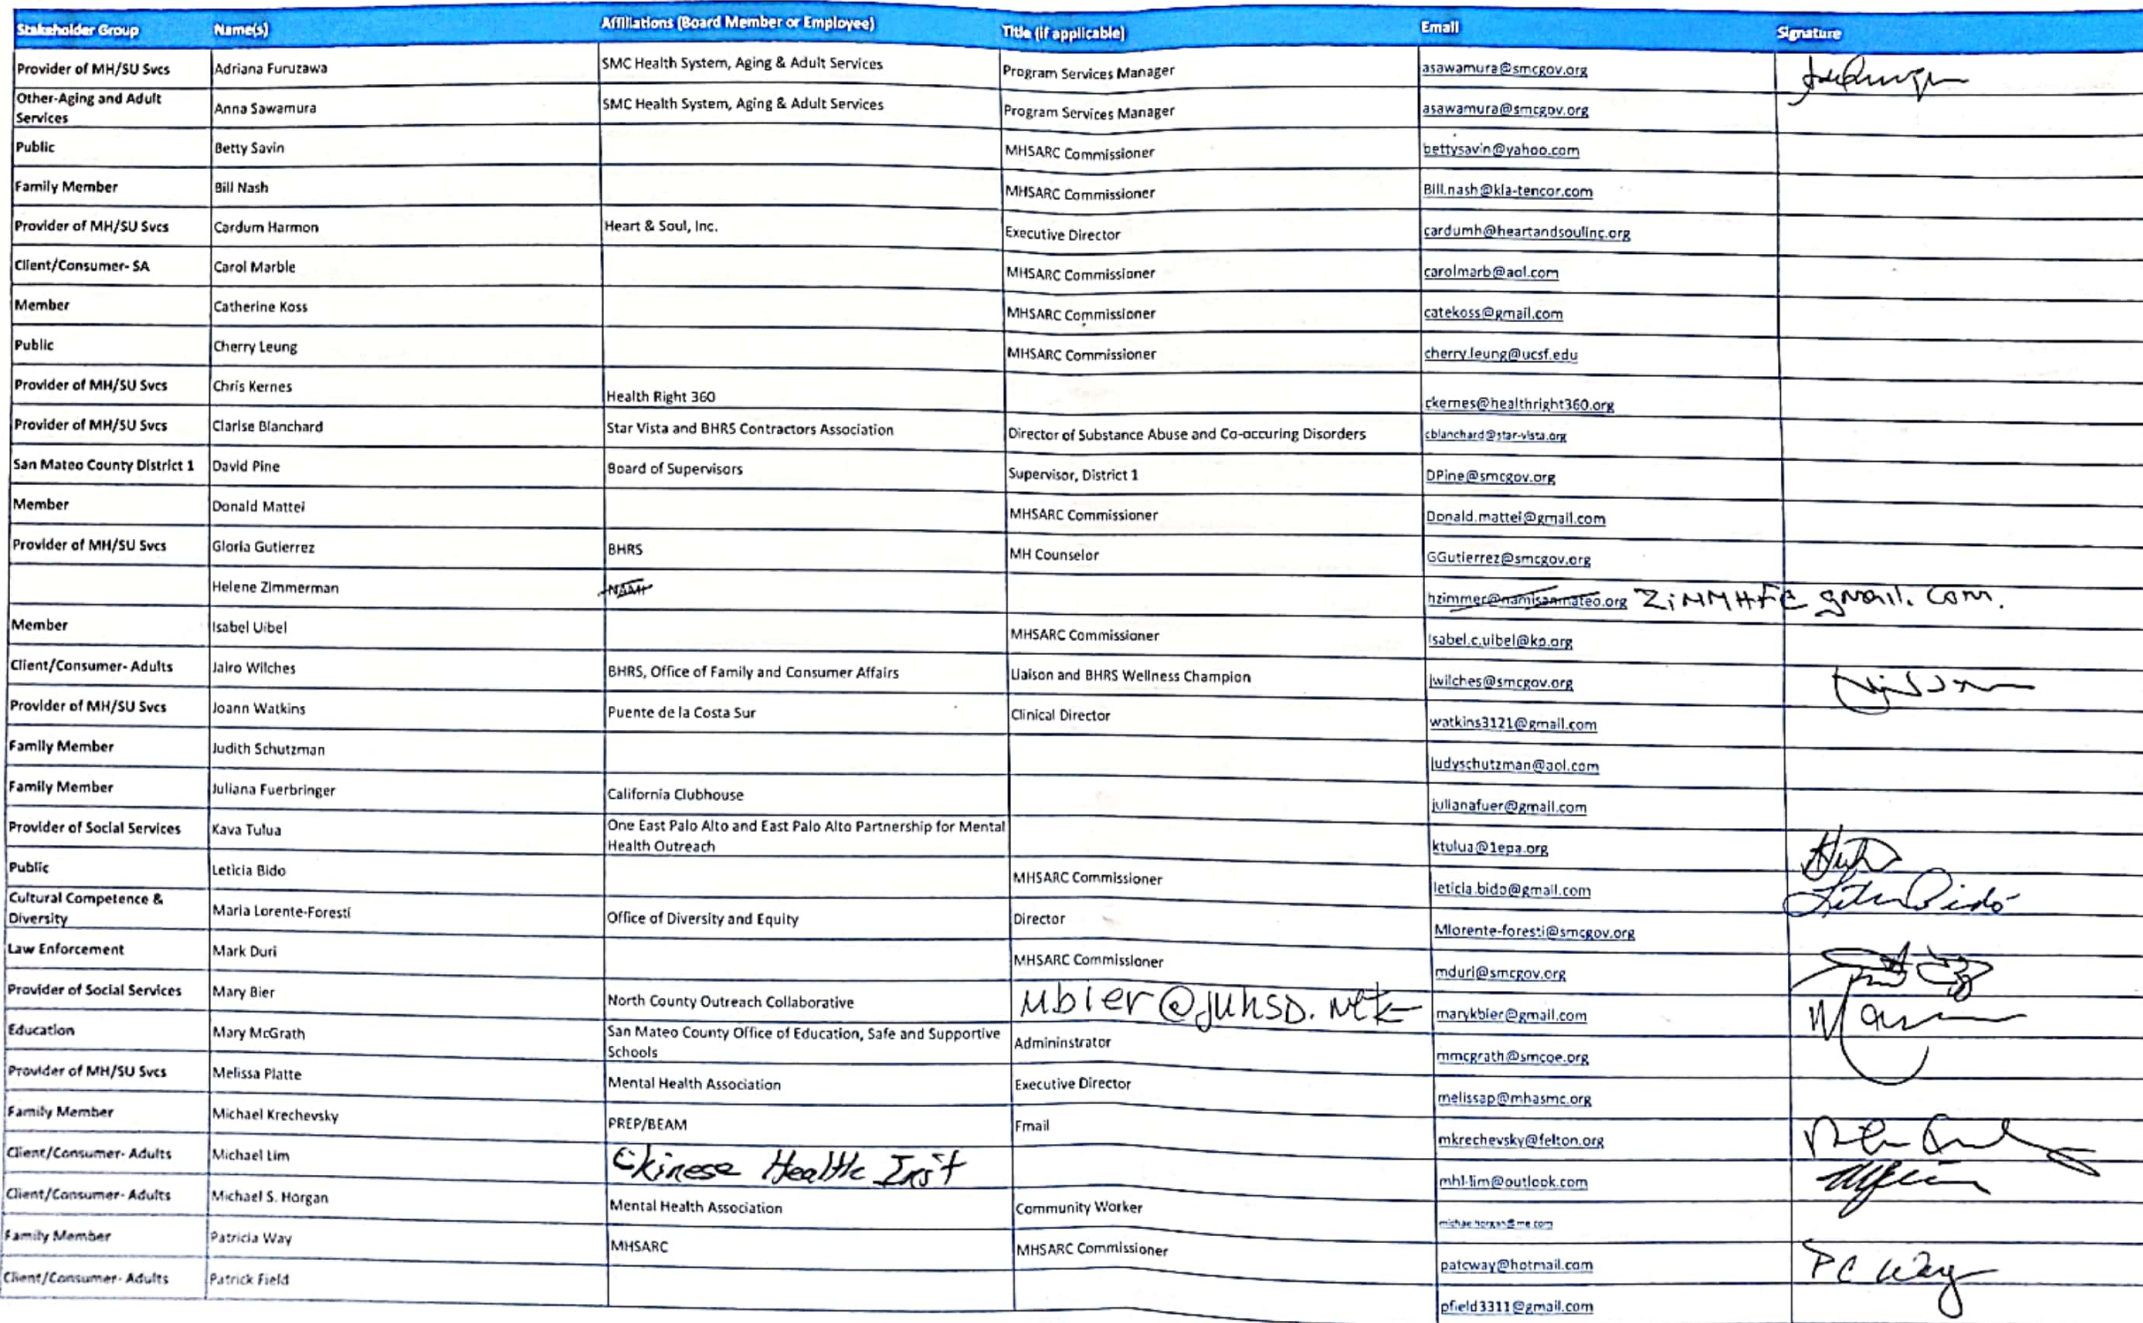 Stakeholder Group Name(s) Affiliations (Board Member or Employee) Title (if applicable) Email Signature
Provider of MH/SU Svcs Adriana Furuzawa SMC Health System, Aging & Adult Services Program Services Manager asawamura@smcgov.org
Other-Aging and Adult
Services Anna Sawamura SMC Health System, Aging & Adult Services Program Services Manager asawamura@smcgov.org
Public Betty Savin MHSARC Commissioner bettysavin@yahoo.com
Family Member Bill Nash MHSARC Commissioner Bill.nash@kla-tencor.com
Provider of MH/SU Svcs Cardum Harmon Heart & Soul, Inc. Executive Director cardumh@heartandsoulinc.org
Client/Consumer- SA Carol Marble MHSARC Commissioner carolmarb@aol.com
Member Catherine Koss MHSARC Commissioner catekoss@gmail.com
Public Cherry Leung MHSARC Commissioner cherry.leung@ucsf.edu
Provider of MH/SU Svcs Chris Kernes Health Right 360 ckernes@healthright360.org
Provider of MH/SU Svcs Clarise Blanchard Star Vista and BHRS Contractors Association Director of Substance Abuse and Co-occuring Disorders cblanchard@star-vista.org
San Mateo County District 1 David Pine Board of Supervisors Supervisor, District 1 DPine@smcgov.org
Member Donald Mattei MHSARC Commissioner Donald.mattei@gmail.com
Provider of MH/SU Svcs Gloria Gutierrez BHRS MH Counselor GGutierrez@smcgov.org
Helene Zimmerman NAMI hzimmer@namisanmateo.org ZiMMHFE gmail. com.
Member Isabel Uibel MHSARC Commissioner Isabel.c.uibel@kp.org
Client/Consumer- Adults Jairo Wilches BHRS, Office of Family and Consumer Affairs Liaison and BHRS Wellness Champion jwilches@smcgov.org
Provider of MH/SU Svcs Joann Watkins Puente de la Costa Sur Clinical Director watkins3121@gmail.com
Family Member Judith Schutzman judyschutzman@aol.com
Family Member Juliana Fuerbringer California Clubhouse julianafuer@gmail.com
Provider of Social Services Kava Tulua One East Palo Alto and East Palo Alto Partnership for Mental
Health Outreach ktulua@1epa.org
Public Leticia Bido MHSARC Commissioner leticia.bido@gmail.com
Cultural Competence &
Diversity Maria Lorente-Foresti Office of Diversity and Equity Director Mlorente-foresti@smcgov.org
Law Enforcement Mark Duri MHSARC Commissioner mduri@smcgov.org
Provider of Social Services Mary Bier North County Outreach Collaborative Mbier@juhsd.net marykbier@gmail.com
Education Mary McGrath San Mateo County Office of Education, Safe and Supportive
Schools Admininstrator mmcgrath@smcoe.org
Provider of MH/SU Svcs Melissa Platte Mental Health Association Executive Director melissap@mhasmc.org
Family Member Michael Krechevsky PREP/BEAM Fmail mkrechevsky@felton.org
Client/Consumer- Adults Michael Lim Chinese Health Inst mhl-lim@outlook.com
Client/Consumer- Adults Michael S. Horgan Mental Health Association Community Worker
Family Member Patricia Way MHSARC MHSARC Commissioner patcway@hotmail.com PC Way
Client/Consumer- Adults Patrick Field pfield3311@gmail.com